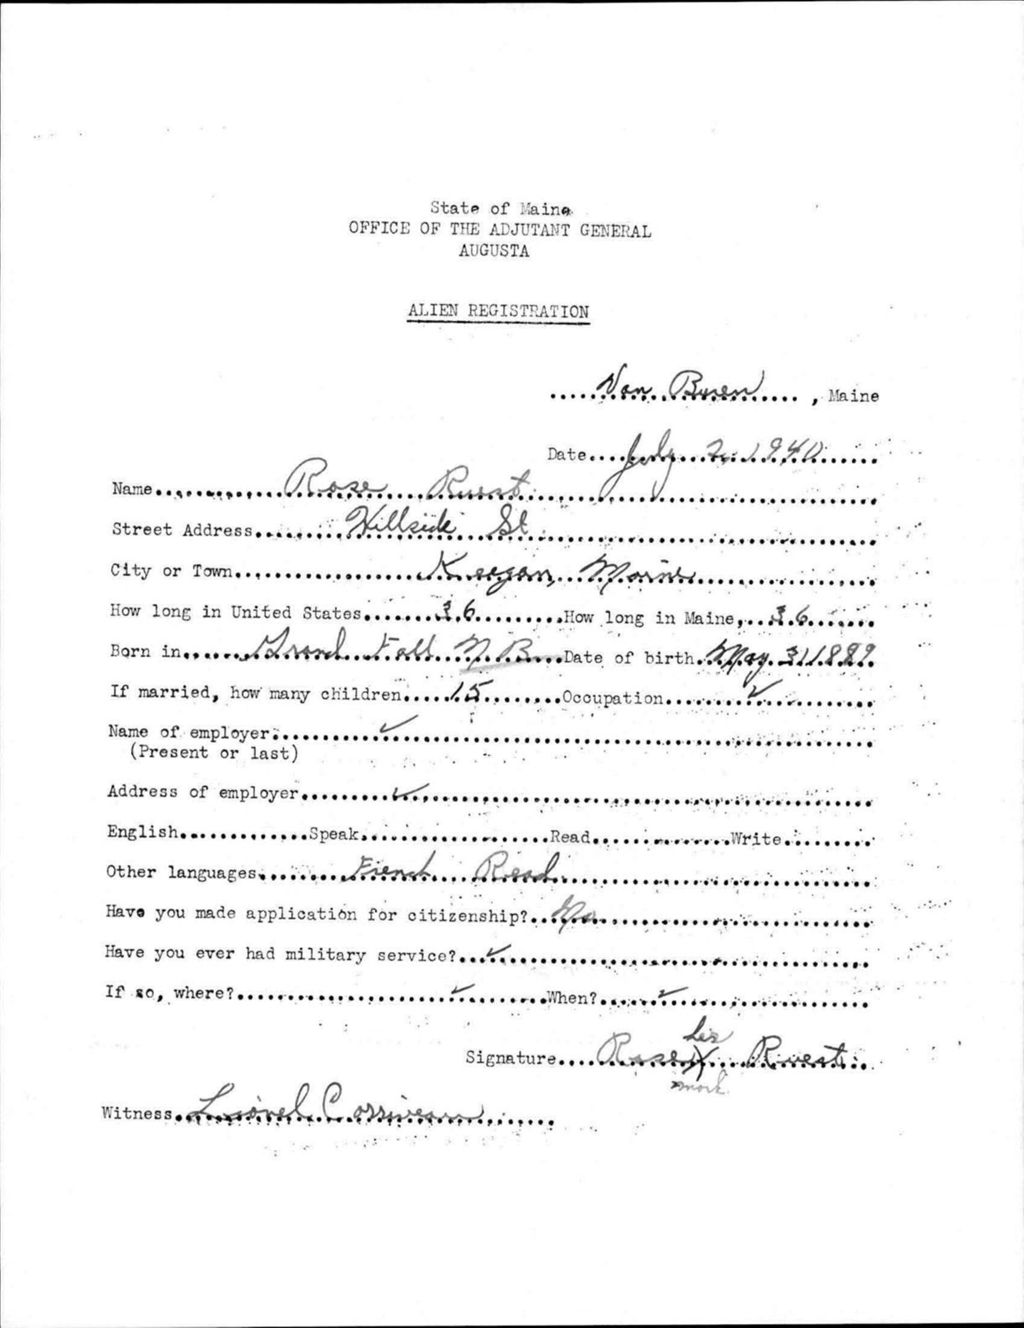 State of Maine
OFFICE OF THE ADJUTANT GENERAL
AUGUSTA
ALIEN REGISTRATION
Van Buren, Maine
Date July 2, 1940
Name Rose Ruest
Street Address Hillside St
City or Town Keegan, Maine
How long in United States 36 How long in Maine, 36
Born in Grand Fall N.B. Date of birth May 31 1889
If married, how many children 15 Occupation ✓
Name of employer ✓
(Present or last)
Address of employer ✓
English Speak Read Write
Other languages French Read
Have you made application for citizenship? No
Have you ever had military service? ✓
If so, where? ✓ When? ✓
her
Signature Rose X Ruest
mark
Witness Lionel Corriveau